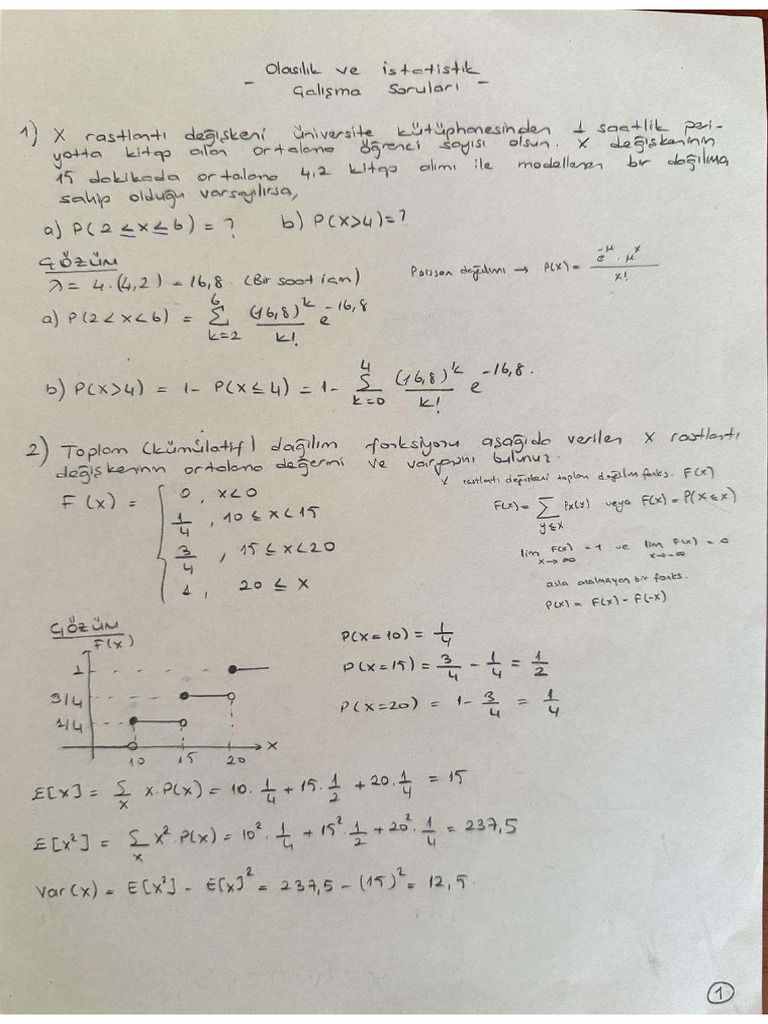 Olasılık ve istatistik
- Çalışma Soruları -
1) X rastlantı değişkeni üniversite kütüphanesinden 1 saatlik peri-
yotta kitap alan ortalama öğrenci sayısı olsun. X değişkeninin
15 dakikada ortalama 4,2 kitap alımı ile modellenen bir dağılıma
sahip olduğu varsayılırsa,
a) P(2 ≤ x ≤ 6) = ? b) P(x>4) = ?
ÇÖZÜM
λ = 4.(4,2) = 16,8 (Bir saat için)
Poisson dağılımı → P(x) = e^-μ . μ^x / x!
a) P(2 < x < 6) = Σ_{k=2}^{6} (16,8)^k / k! e^-16,8
b) P(x>4) = 1 - P(x ≤ 4) = 1 - Σ_{k=0}^{4} (16,8)^k / k! e^-16,8.
2) Toplam (kümülatif) dağılım fonksiyonu aşağıda verilen X rastlantı
değişkeninin ortalama değerini ve varyansını bulunuz.
F(x) = { 0, x<0
1/4, 10 ≤ x < 15
3/4, 15 ≤ x < 20
1, 20 ≤ x
X rastlantı değişkeni toplam dağılım fonks. F(x)
F(x) = Σ_{y≤x} Px(y) veya F(x) = P(X ≤ x)
lim_{x→∞} F(x) = 1 ve lim_{x→-∞} F(x) = 0
asla azalmayan bir fonks.
P(x) = F(x) - F(-x)
ÇÖZÜM
F(x)
1
3/4
1/4
10 15 20 x
P(x=10) = 1/4
P(x=15) = 3/4 - 1/4 = 1/2
P(x=20) = 1 - 3/4 = 1/4
E[x] = Σ_x x.P(x) = 10. 1/4 + 15. 1/2 + 20. 1/4 = 15
E[x²] = Σ_x x².P(x) = 10². 1/4 + 15². 1/2 + 20². 1/4 = 237,5
Var(x) = E[x²] - E[x]² = 237,5 - (15)² = 12,5.
1